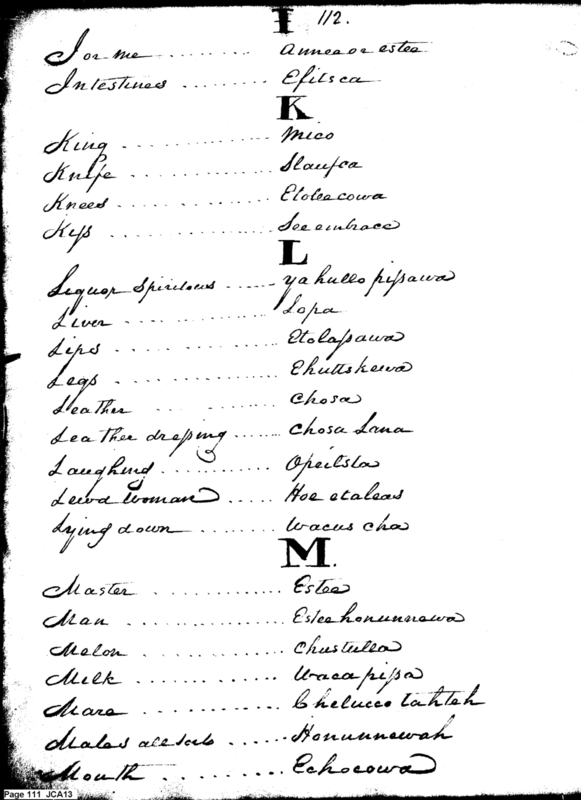 I 112.
I or me ........ Anneaor estee
Intestines ........ Efilsca
K
King ........ Mico
Knife ........ Slaufca
Knees ........ Etoleecowa
Kiss ........ See embrace
L
Liquor Spiritous ...... yahullo pissawa
Liver ........ Lopa
Lips ........ Etolassawa
Legs ........ Ehuttskewa
Leather ........ Chosa
Leather dressing ....... Chosa Lana
Laughing ........ Opeitsta
Lewd Woman ..... Hoe etaleas
Lying down ........ Wacus cha
M.
Master ........ Estee
Man ........ Estee honunnewa
Melon ........ Chustulla
Milk ........ Waca pissa
Mare ........ Chelucco tahteh
Males all sorts ...... Honunnewah
Mouth ........ Echocowa
Page 111 JCA13